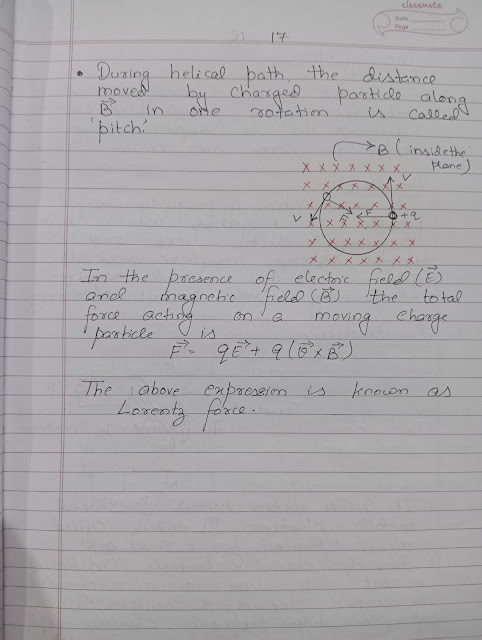 classmate
Date
Page
17
• During helical path, the distance
moved by charged particle along
B⃗ in one rotation is called
'pitch'.
B (inside the
plane)
V
V
F
F
+q
In the presence of electric field (E⃗)
and magnetic field (B⃗) the total
force acting on a moving charge
particle is
F⃗ = qE⃗ + q(v⃗ × B⃗)
The above expression is known as
Lorentz force.